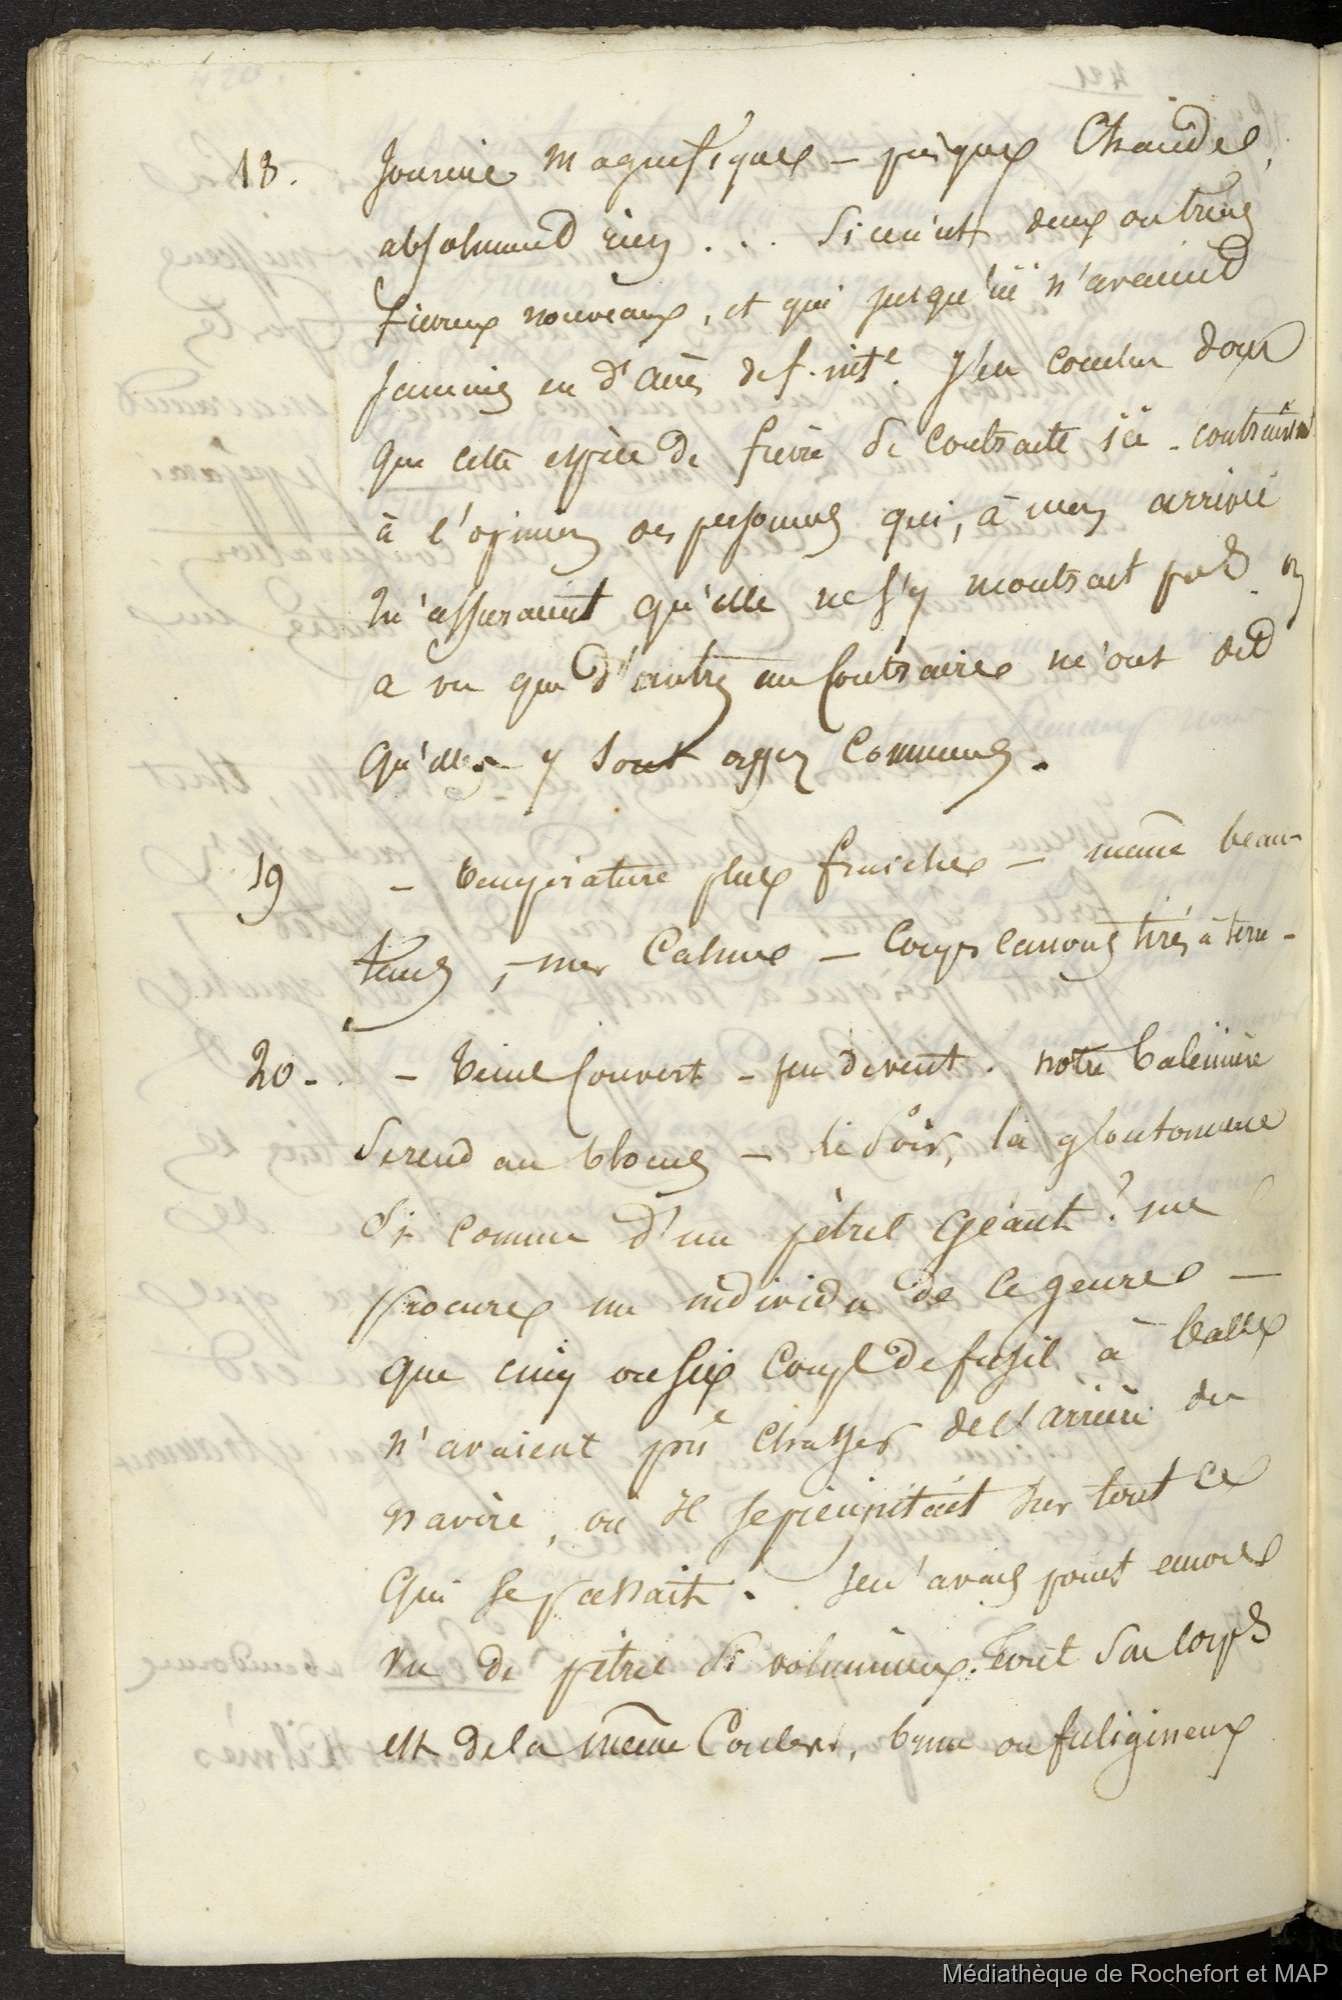 18. Journée magnifique - presque Chaude,
absolument rien ... si ce n'est deux ou trois
fiévreux nouveaux, et qui jusqu'ici n'avaient
jamais eu d'accès de f. intte. J'en conclus donc
que cette espèce de fièvre se contracte ici - contrairement
à l'opinion des personnes qui, à mon arrivée
m'assuraient qu'elle ne s'y montrait pas. on
a vu que d'autres au Contraire m'ont dit
qu'elles y sont assez Communes.
19 - température plus fraiche - même beau
temps, - mer Calme - Coups canons tirés à terre -
20. - tems Couvert - peu de vent. notre baleinière
se rend au blocus - le soir, la gloutonnerie
si connue d'un pétrel géant? me
procure un individu de ce genre -
que cinq ou six Coups de fusil à balle
n'avaient pu chasser de l'arrière du
navire, où il se précipitait sur tout ce
qui se passait. Je n'avais point encore
vu de pétrel si volumineux. Tout son corps
est de la même Couleur, brun ou fuligineux
Médiathèque de Rochefort et MAP